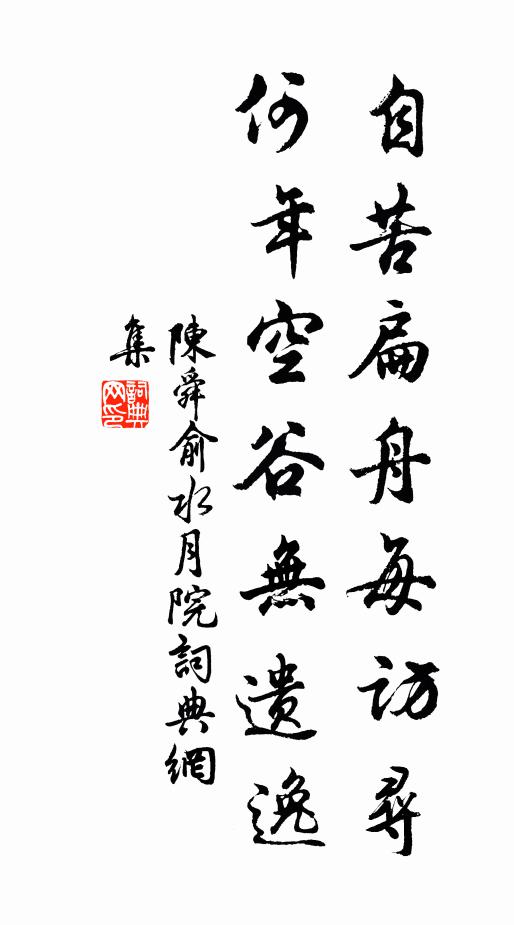 自苦扁舟每訪尋
何年空谷無遺逸
陳舜俞水月院詞典網
集
詞典網印